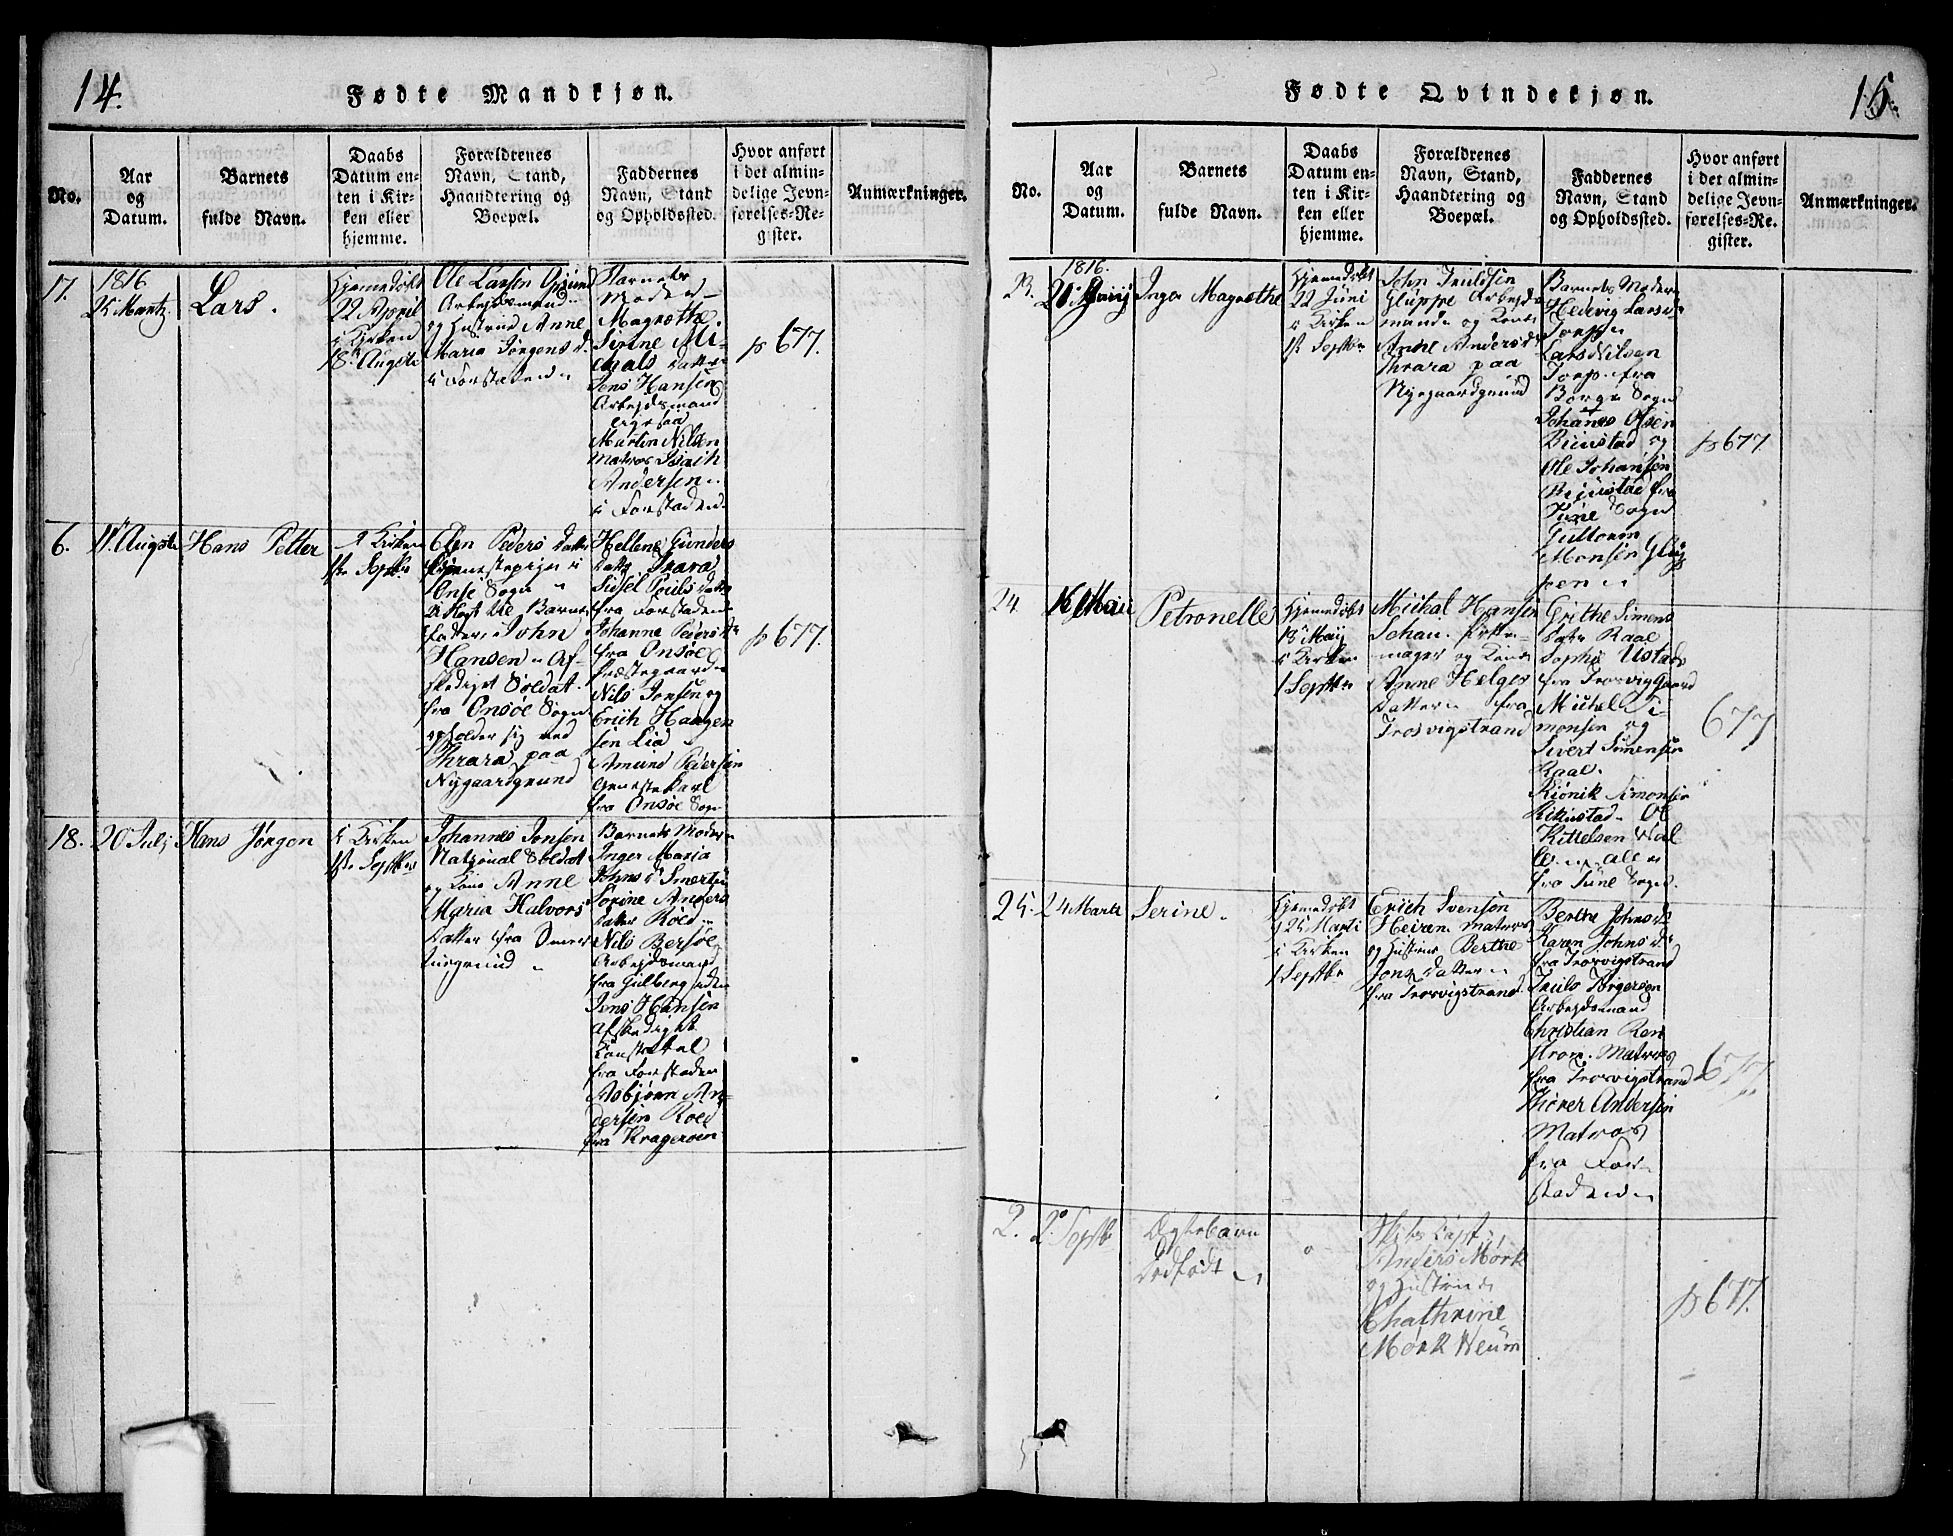 14.
Fødte Mandkjøn.
No.
Aar
og
Datum.
Barnets
fulde Navn.
Daabs
Datum en-
ten i Kir-
ken eller
hjemme.
Forældrenes
Navn, Stand,
Haandtering og
Boepæl.
Faddernes
Navn, Stand
og Opholdssted.
Hvor anført
i det almin-
delige Jevn-
førelses-Re-
gister.
Anmærkninger.
17.
1816
25 Martz.
Lars.
Hjemedøbt
22 April
i Kirken
18 Augste
Ole Larsen
Arbejdsmand
og Hustrue Anne
Maria Jørgens d.
i Forstaden
Barnets
Moder
Magrethe
Sirine Mi-
Datter
Jens Hansen
Arbejdsmand
Martin Nilsen
Matros
Andersen
i Forstaden
p 677.
6.
11 Augste
Hans Petter
i Kirken
1ste Septbr
Elen Peders Datter
Onsø Sogn
Barne
fader John
Hansen Af-
skediget Soldat
fra Onsøe Sogn
opholder sig ved
Thrara paa
Nygaardgrund
Hellene Gunders
Datter Trara
Sidsel Pouls Datter
fra Forstaden
Johanne Peders Dr
fra Onsøe
Præstegaard
Nils Jensen og
Erich Haagen
sen Lia
Amund Pedersen
fra Onsøe Sogn
p 677.
18.
20 Juli
Hans Jørgen
i Kirken
1ste Septbr
Johannes Jensen
National Soldat
og Kone Anne
Maria Halvors
Datter fra Smer
tugrund
Barnets Moder
Inger Maria
Johns D Smertu
Sorine Anders
Datter Röed
Nils Bersøe
Arbejdsmand
fra Gulberg siden
Jens Hansen
afskediget
Constabel
fra Forstaden
Asbjørn An-
dersen Roed
fra Kragerøen
15.
Fødte Qvindekjøn.
No.
Aar
og
Datum.
Barnets
fulde Navn.
Daabs
Datum en-
ten i Kir-
ken eller
hjemme.
Forældrenes
Navn, Stand,
Haandtering og
Boepæl.
Faddernes
Navn, Stand
og Opholdssted.
Hvor anført
i det almin-
delige Jevn-
førelses-Re-
gister.
Anmærkninger.
23.
1816.
Inger Magrethe
Hjemedøbt
22 Juni
i Kirken
1ste Septbr
John Truldsen
Gluppe Arbejds
mand og Kone
Anne Anders D
Thrara paa
Nygaardgrund
Barnets Moder
Hedevig Lars D
Torp
Lars Nilsen
Torp fra
Borge Sogn
Johanes Olsen
og
Ole Johansen
fra
Tune Sogn
Guttorm
Monsen Glup
pen
p 677.
24
16 Maii
Petronelle
Hjemedøbt
18 Maij
i Kirken
1 Septbr
Mickal Hansen
mager og Kone
Anne Helges
Datter fra
Trosvigstrand
Grethe Simens
Datr Raae
Sophie Ustad
fra Trosviggaard
Michel Si-
monsen og
Sivert Simensen
Raae.
Simonsen
Kittelsen
Alle
fra Tune Sogn.
677
25.
24 Martz
Serine
Hjemedøbt
25 Marti
i Kirken
1 Septbr
Erich Svensen
Heiren Matros
og Hustrue Berthe
Jons Datter
fra Trosvigstrand
Berthe Johns D
Karen Johns D
fra Trosvigstrand
Truls Torgersen
Arbejdsmand
Christian Ren
strøm. Matros
fra Trosvigstrand
Andersen
Matros
fra For
staden
677
2.
2 Septbr
Ægtebarn
Dødfødt
Anders Mørk
og Hustrue
Chathrine
Mørk Neum
p 677.